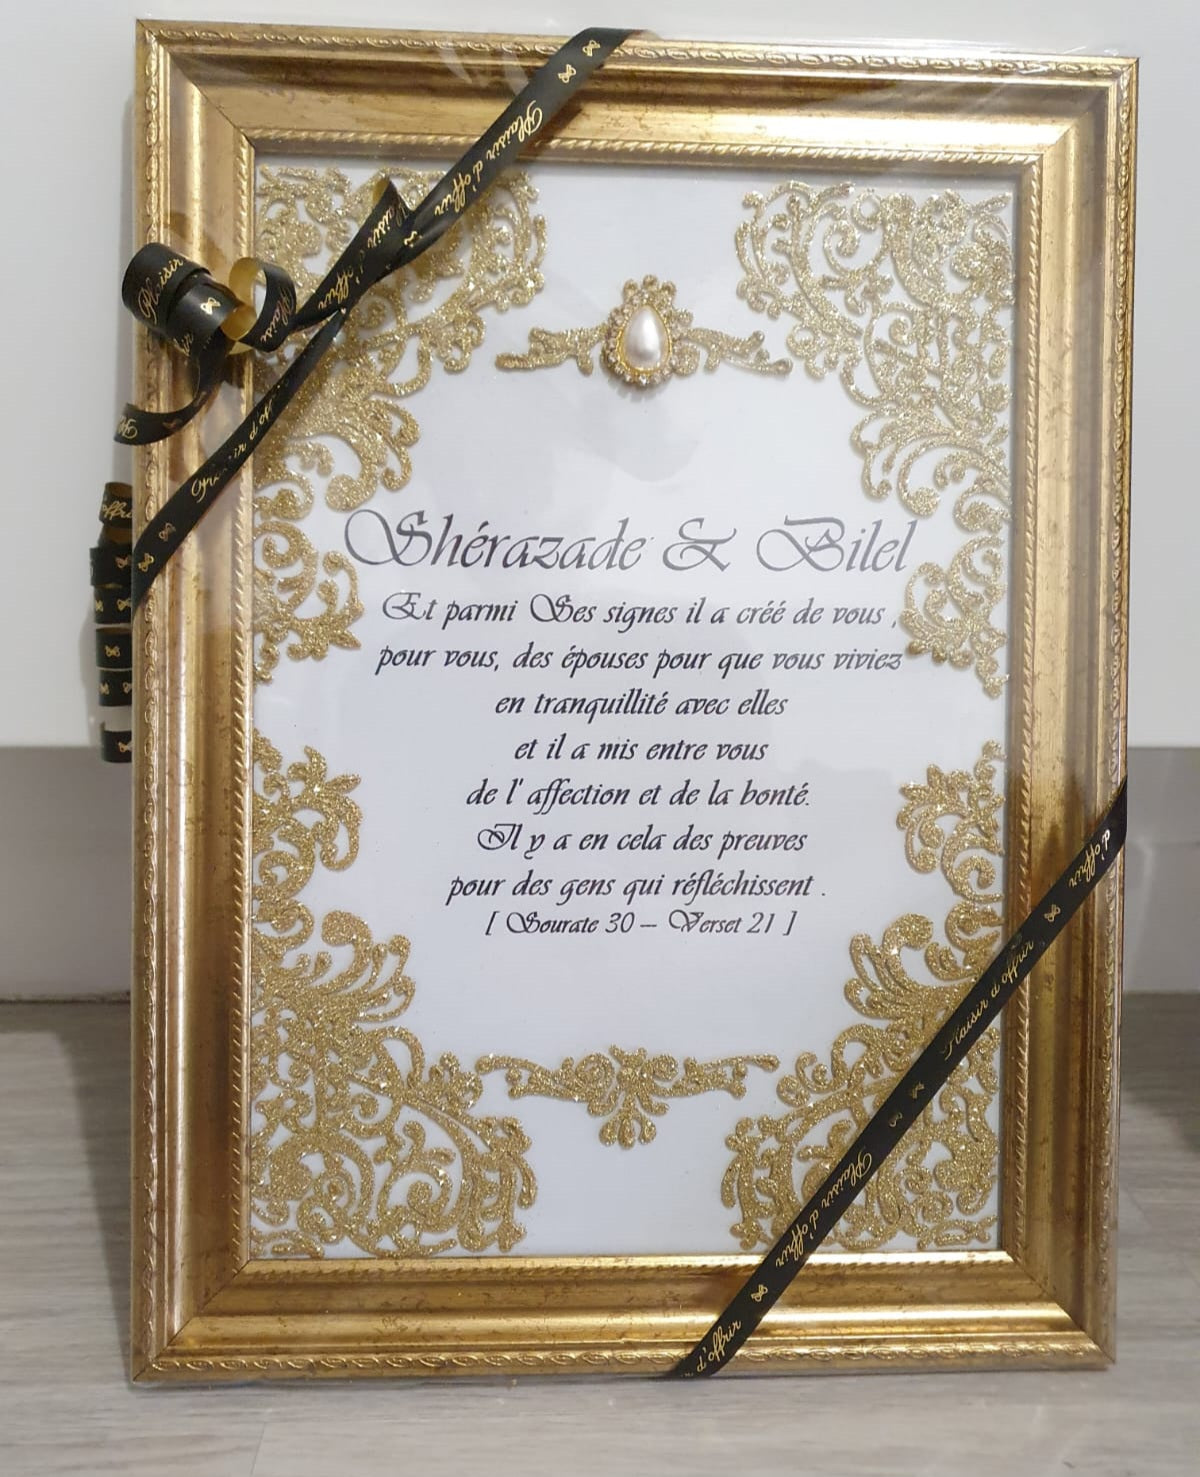 Plaisir d'offrir
Plaisir d'offrir
Plaisir
Shérazade & Bilel
Et parmi Ses signes il a créé de vous ,
pour vous, des épouses pour que vous viviez
en tranquillité avec elles
et il a mis entre vous
de l' affection et de la bonté.
Il y a en cela des preuves
pour des gens qui réfléchissent .
[ Sourate 30 – Verset 21 ]
d'offrir
Plaisir d'offrir
Plaisir d'offrir
d'offrir